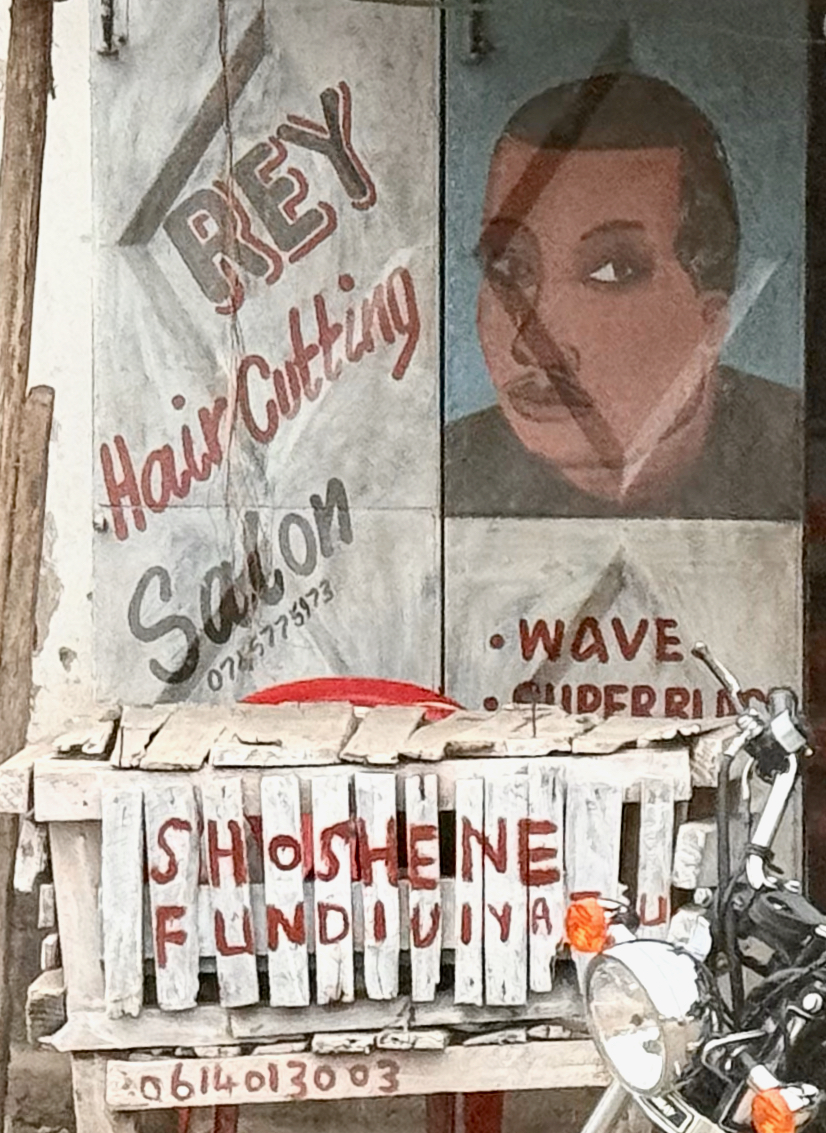 REY
Hair Cutting
Salon
• WAVE
• SUPERBLACK
SHOSHENE
FUNDI VIYA
0614013003